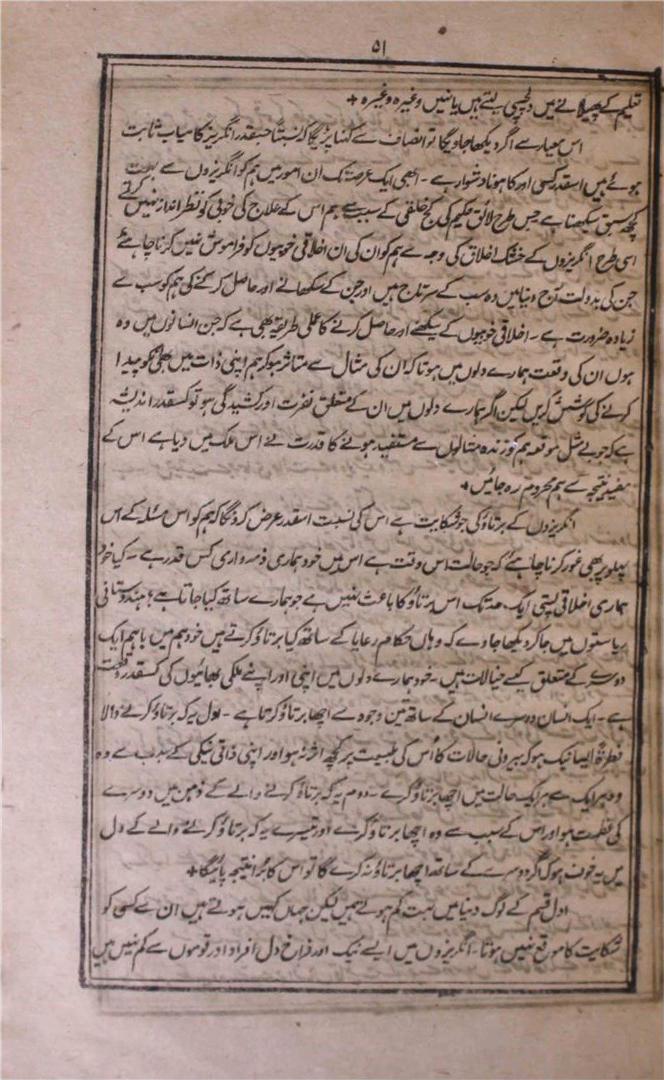 ۵۱
تعلیم کے پھیلانے میں دلچسپی لیتے ہیں یا نہیں وغیرہ وغیرہ +
اس معیار سے اگر دیکھا جاویگا تو انصاف سے کہنا پڑیگا کہ نسبتاً جسقدر انگریز کامیاب ثابت
ہوئے ہیں اسقدر کسی اور کا ہونا دشوار ہے ۔ ابھی ایک عرصہ تک ان امور میں ہم کو انگریزوں سے بہت
کچھ سبق سیکھنا ہے جس طرح لائق حکیم کی کج خلقی کے سبب سے ہم اس کے علاج کی خوبی کو نظر انداز نہیں کرتے
اسی طرح انگریزوں کے خشک اخلاق کی وجہ سے ہم کو ان کی ان اخلاقی خوبیوں کو فراموش نہیں کرنا چاہئے
جن کی بدولت آج دنیا میں وہ سب کے سرتاج ہیں اور جن کے سکھانے اور حاصل کرنے کی ہم کو سب سے
زیادہ ضرورت ہے ۔ اخلاقی خوبیوں کے سیکھنے اور حاصل کرنے کا عملی طریقہ یہی ہے کہ جن انسانوں میں وہ
ہوں ان کی وقعت ہمارے دلوں میں ہو تاکہ ان کی مثال سے متاثر ہو کر ہم اپنی ذات میں بھی انکو پیدا
کرنے کی کوشش کریں لیکن اگر ہمارے دلوں میں ان کے متعلق نفرت اور کشیدگی ہو تو کسقدر اندیشہ
ہے کہ جو بے مثل موقعہ ہم کو زندہ مثالوں سے مستفید ہونے کا قدرت نے اس ملک میں دیا ہے اس کے
مفید نتیجہ سے ہم محروم رہ جائیں +
انگریزوں کے برتاؤ کی جو شکایت ہے اس کی نسبت اسقدر عرض کرونگا کہ ہم کو اس مسئلہ کے اس
پہلو پر بھی غور کرنا چاہئے کہ جو حالت اس وقت ہے اس میں خود ہماری ذمہ واری کس قدر ہے ۔ کیا خود
ہماری اخلاقی پستی ایک حد تک اس برتاؤ کا باعث نہیں ہے جو ہمارے ساتھ کیا جاتا ہے ؟ ہندوستانی
ریاستوں میں جا کر دیکھا جاوے کہ وہاں حکام رعایا کے ساتھ کیا برتاؤ کرتے ہیں خود ہم میں باہم ایک
دوسرے کے متعلق کیسے خیالات ہیں ۔ خود ہمارے دلوں میں اپنی اور اپنے ملکی بھائیوں کی کسقدر وقعت
ہے ۔ ایک انسان دوسرے انسان کے ساتھ تین وجوہ سے اچھا برتاؤ کرتا ہے ۔ اول یہ کہ برتاؤ کرنے والا
فطرۃً ایسا نیک ہو کہ بیرونی حالات کا اُس کی طبیعت پر کچھ اثر نہ ہو اور اپنی ذاتی نیکی کے سبب سے وہ
وہ ہر ایک سے ہر ایک حالت میں اچھا برتاؤ کرے ۔ دوم یہ کہ برتاؤ کرنے والے کے ذہن میں دوسرے
کی عظمت ہو اور اس کے سبب سے وہ اچھا برتاؤ کرے اور تیسرے یہ کہ برتاؤ کرنے والے کے دل
میں یہ خوف ہو کہ اگر دوسرے کے ساتھ اچھا برتاؤ نہ کرے گا تو اس کا بُرا نتیجہ پائیگا +
اول قسم کے لوگ دنیا میں بہت کم ہوتے ہیں لیکن جہاں کہیں ہوتے ہیں ان سے کسی کو
شکایت کا موقع نہیں ہوتا ۔ انگریزوں میں ایسے نیک اور فراخ دل افراد اور قوموں سے کم نہیں ہیں